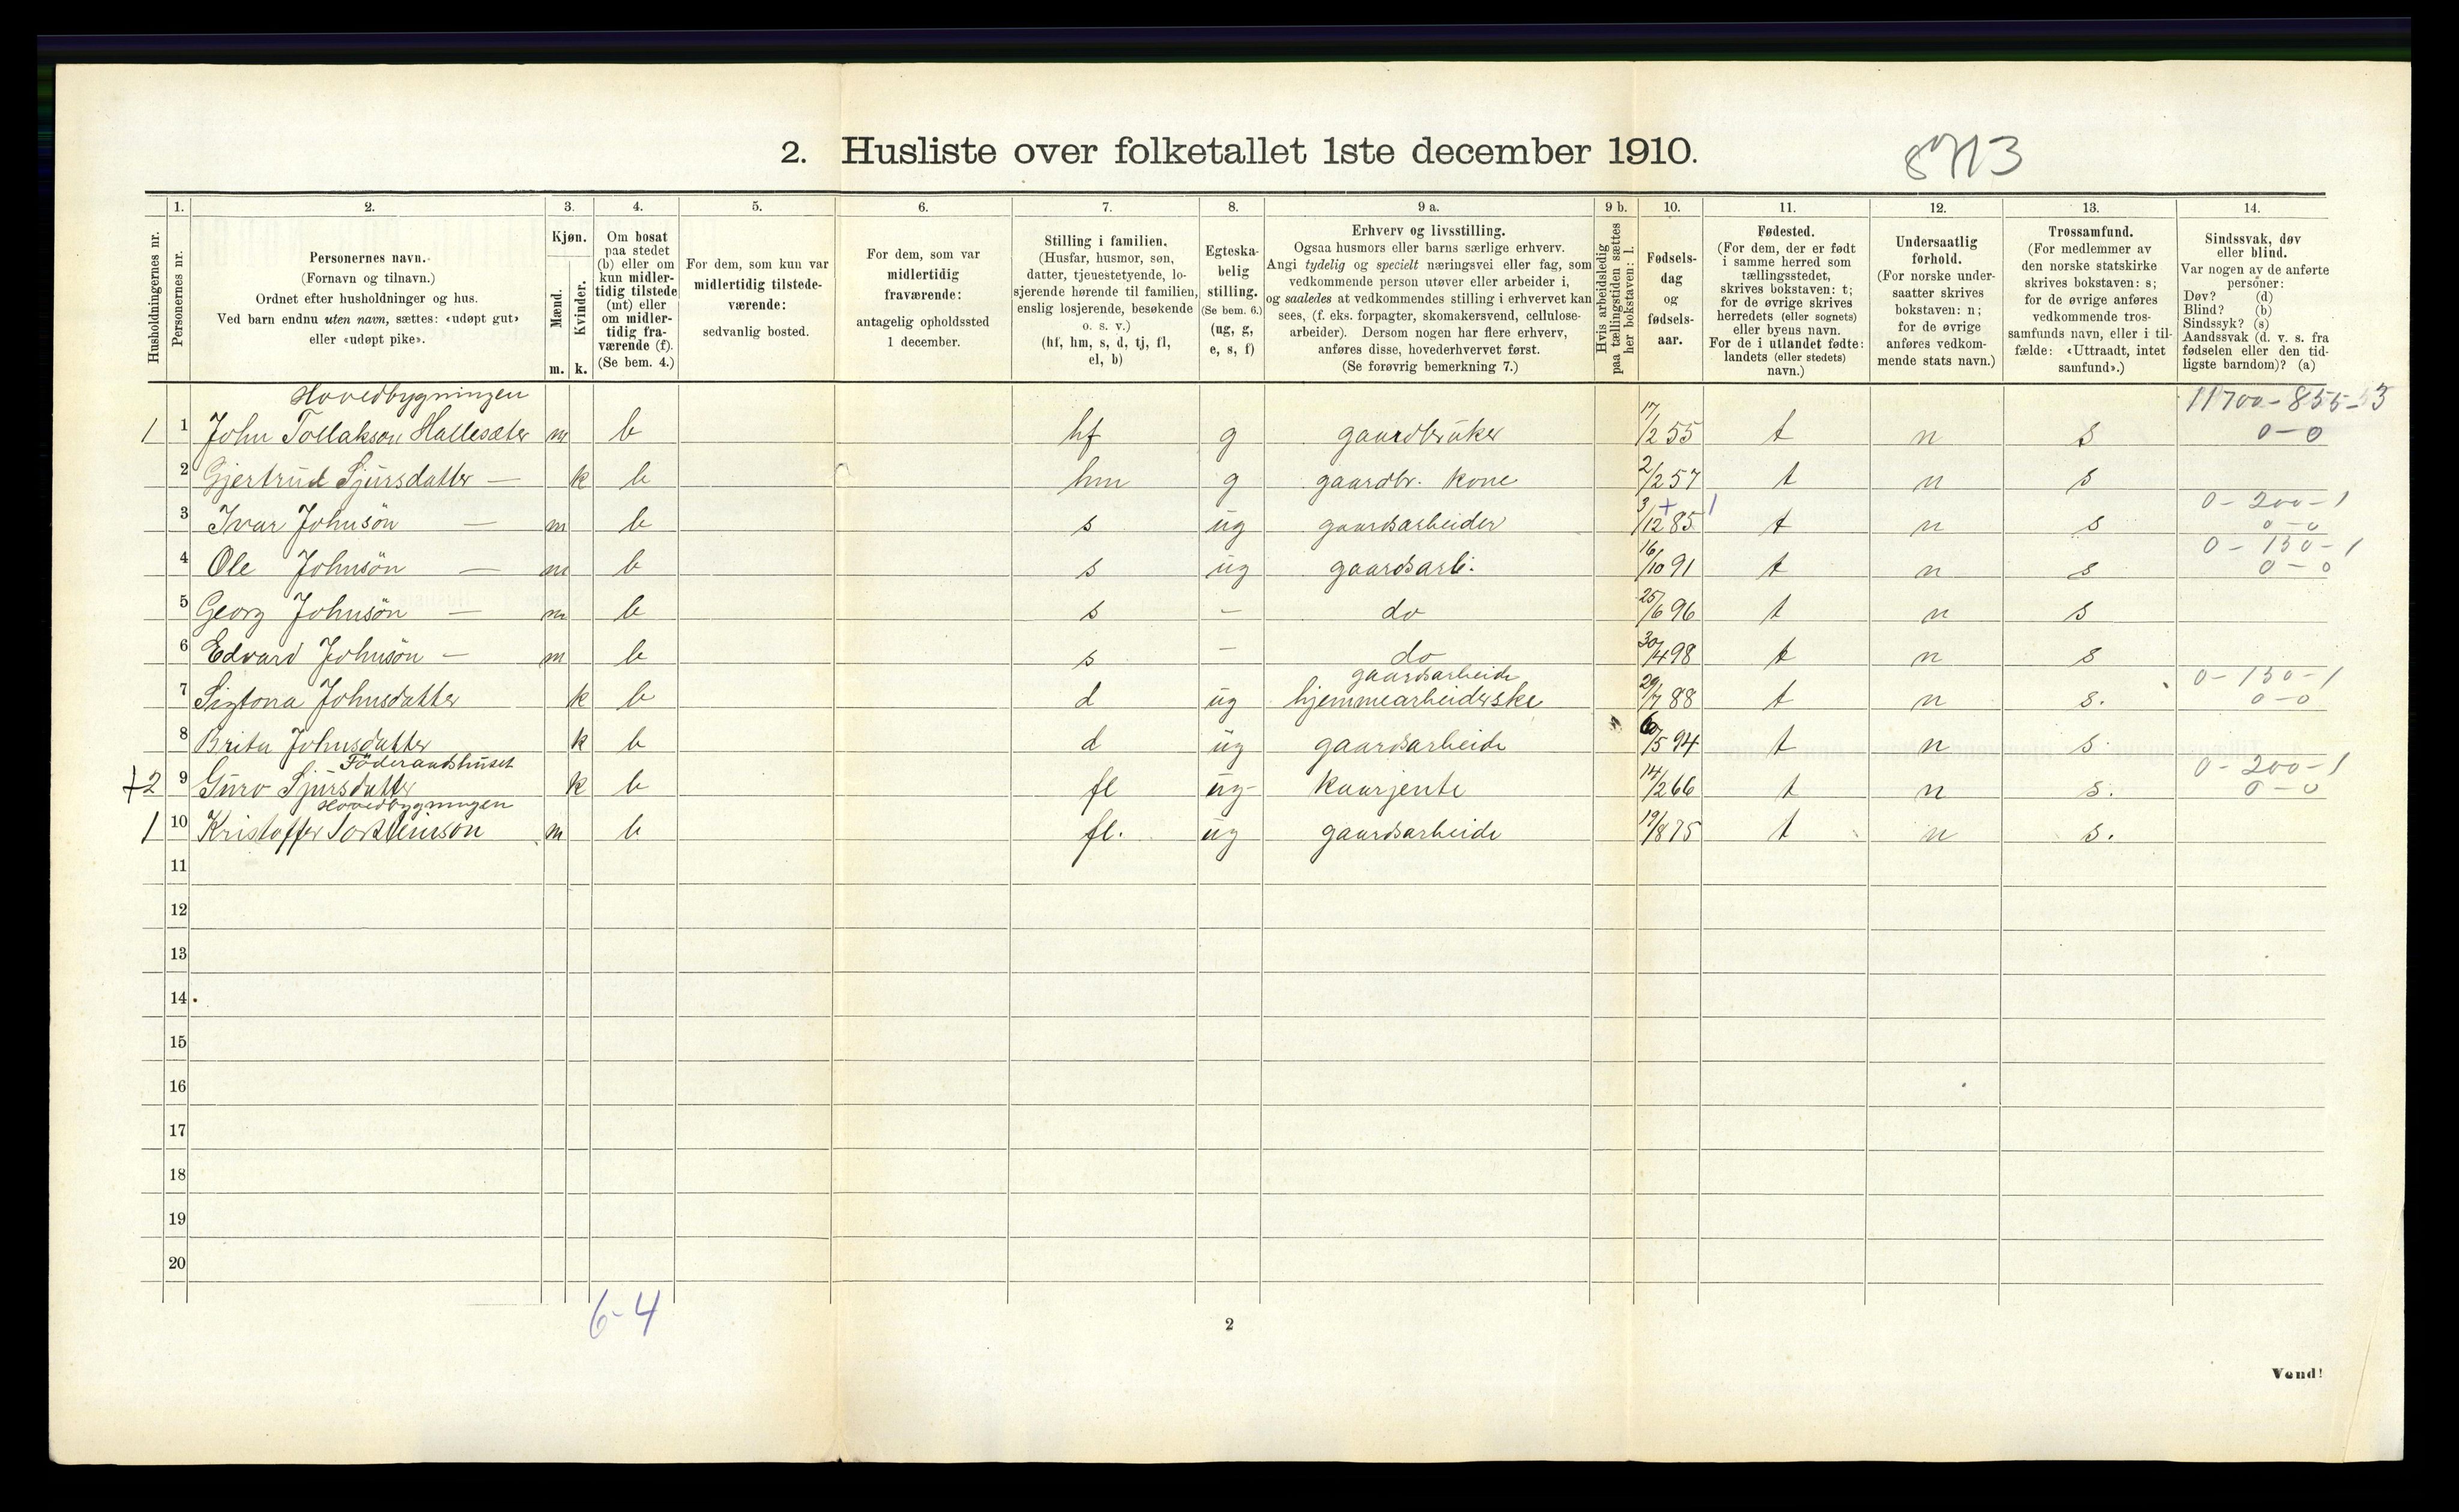 2. Husliste over folketallet 1ste december 1910.
8713
1. 2. 3. 4. 5. 6. 7. 8. 9 a. 9 b. 10. 11. 12. 13. 14.
Husholdningernes nr.
Personernes nr.
Personernes navn.
(Fornavn og tilnavn.)
Ordnet efter husholdninger og hus.
Ved barn endnu uten navn, sættes: «udøpt gut»
eller «udøpt pike».
Kjøn.
Mænd.
Kvinder.
m. k.
Om bosat
paa stedet
(b) eller om
kun midler-
tidig tilstede
(mt) eller
om midler-
tidig fra-
værende (f).
(Se bem. 4.)
For dem, som kun var
midlertidig tilstede-
værende:
sedvanlig bosted.
For dem, som var
midlertidig
fraværende:
antagelig opholdssted
1 december.
Stilling i familien.
(Husfar, husmor, søn,
datter, tjenestetyende, lo-
sjerende hørende til familien,
enslig losjerende, besøkende
o. s. v.)
(hf, hm, s, d, tj, fl,
el, b)
Egteska-
belig
stilling.
(Se bem. 6.)
(ug, g,
e, s, f)
Erhverv og livsstilling.
Ogsaa husmors eller barns særlige erhverv.
Angi tydelig og specielt næringsvei eller fag, som
vedkommende person utøver eller arbeider i,
og saaledes at vedkommendes stilling i erhvervet kan
sees, (f. eks. forpagter, skomakersvend, cellulose-
arbeider). Dersom nogen har flere erhverv,
anføres disse, hovederhvervet først.
(Se forøvrig bemerkning 7.)
Hvis arbeidsledig
paa tællingstiden sættes
her bokstaven: l.
Fødsels-
dag
og
fødsels-
aar.
Fødested.
(For dem, der er født
i samme herred som
tællingsstedet,
skrives bokstaven: t;
for de øvrige skrives
herredets (eller sognets)
eller byens navn.
For de i utlandet fødte:
landets (eller stedets)
navn.)
Undersaatlig
forhold.
(For norske under-
saatter skrives
bokstaven: n;
for de øvrige
anføres vedkom-
mende stats navn.)
Trossamfund.
(For medlemmer av
den norske statskirke
skrives bokstaven: s;
for de øvrige anføres
vedkommende tros-
samfunds navn, eller i til-
fælde: «Uttraadt, intet
samfund».)
Sindssvak, døv
eller blind.
Var nogen av de anførte
personer:
Døv? (d)
Blind? (b)
Sindssyk? (s)
Aandssvak (d. v. s. fra
fødselen eller den tid-
ligste barndom)? (a)
Hovedbygningen 11700-855-3
1 1 John Tollakson Hallesæter m b hf g gaardbruker 17/2 55 t n s 0-0
2 Gjertrud Sjursdatter — k b hm g gaardbr. kone 2/2 57 t n s
3 Ivar Johnsön — m b s ug gaardsarbeider 3/12 85 t n s 0-200-1 0-0
4 Ole Johnsön — m b s ug gaardsarb. 16/10 91 t n s 0-150-1 0-0
5 Georg Johnsön — m b s - do 25/6 96 t n s
6 Edvard Johnsön — m b s - do 30/4 98 t n s
gaardsarbeide
7 Sigtona Johnsdatter k b d ug hjemmearbeiderske 29/7 88 t n s. 0-150-1 0-0
8 Brita Johnsdatter k b d ug gaardsarbeide 6/5 94 t n s
Föderaadshuset
+2 9 Guro Sjursdatter k b fl ug kaarjente 14/2 66 t n s. 0-200-1 0-0
Hovedbygningen
1 10 Kristoffer Torsteinson m b fl. ug gaardsarbeide 19/8 75 t n s.
11
12
13
14
15
16
17
18
19
20
6-4
2
Vend!